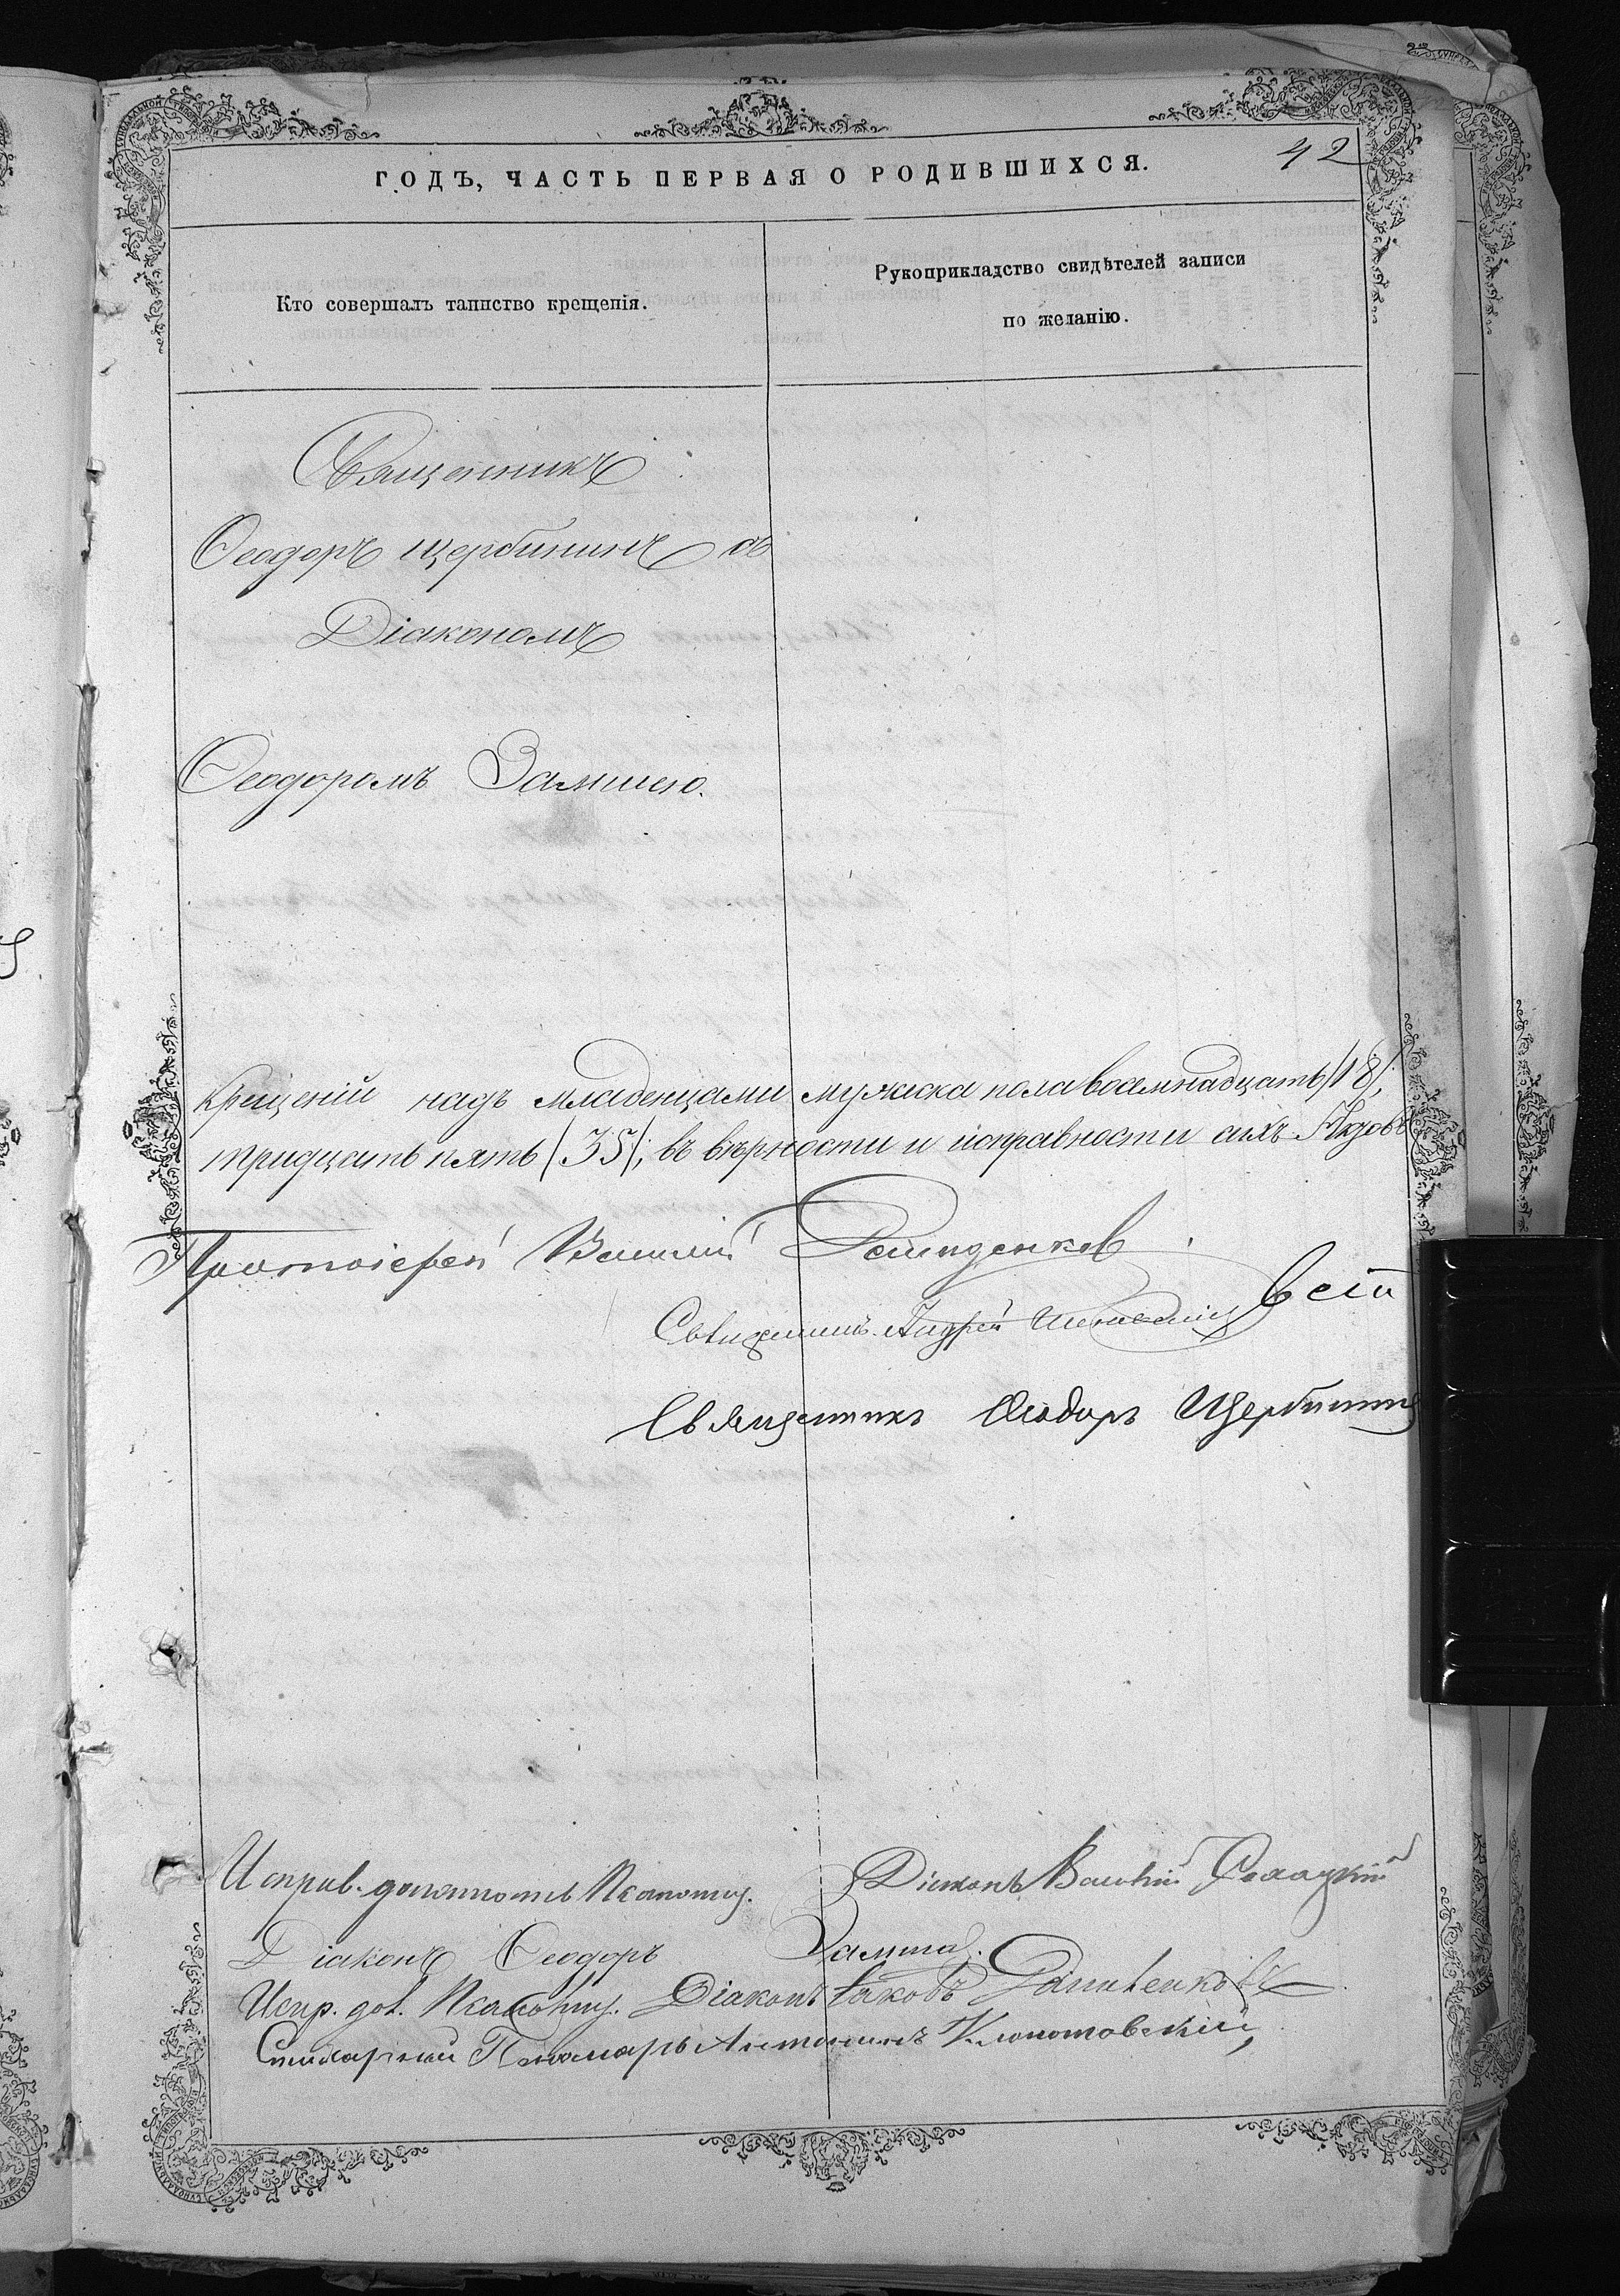 42
ГОДЪ, ЧАСТЬ ПЕРВАЯ О РОДИВШИХСЯ.
Кто совершалъ таинство крещенія.
Рукоприкладство свидѣтелей записи
по желанію.
Священникъ
Ѳеодоръ Щербининъ съ
Діакономъ
Ѳеодоромъ Замшею.
крещеній надъ младенцами мужска пола восемнадцать /18/,
тридцать пять /35/; въ вѣрности и исправности сихъ Актовъ
Протоіерей Василій
Священникъ Андрей
Священникъ Ѳеодоръ Щербининъ
Исправ. должность Псаломщ. Діаконъ Василій
Діаконъ Ѳеодоръ Замша.
Испр. дол. Псаломщ. Діаконъ Іаковъ
Стихарный Пономарь Антонинъ Клопотовскій,